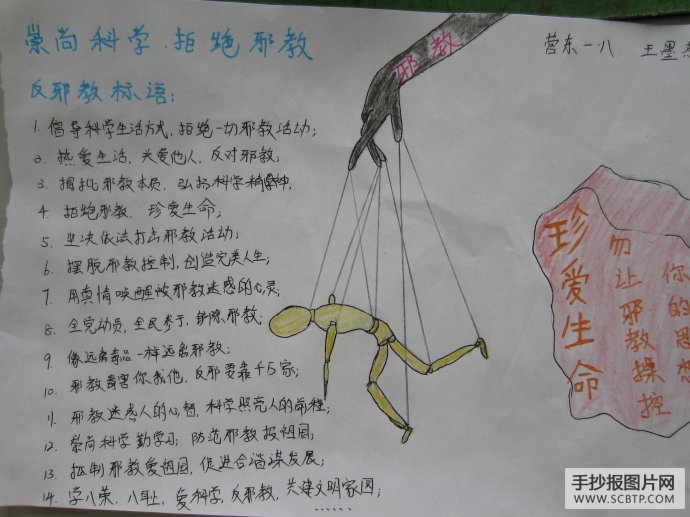 崇尚科学·拒绝邪教
反邪教标语：
1. 倡导科学生活方式，拒绝一切邪教活动；
2. 热爱生活，关爱他人，反对邪教；
3. 揭批邪教本质，弘扬科学精神，
4. 拒绝邪教，珍爱生命；
5. 坚决依法打击邪教活动；
6. 摆脱邪教控制，创造完美人生；
7. 用真情唤醒被邪教迷惑的心灵；
8. 全党动员，全民参于，铲除邪教；
9. 像远离毒品一样远离邪教；
10. 邪教毒害你我他，反邪要靠千万家；
11. 邪教迷惑人的心智，科学照亮人的前程；
12. 崇尚科学勤学习，防范邪教报祖国；
13. 抵制邪教爱祖国，促进合谐谋发展；
14. 学八荣、八耻，爱科学，反邪教，共建文明家园；
……
邪教
营东一八 王墨
珍爱生命
勿让邪教操控
你的思想
手抄报图片网
WWW.SCBTP.COM